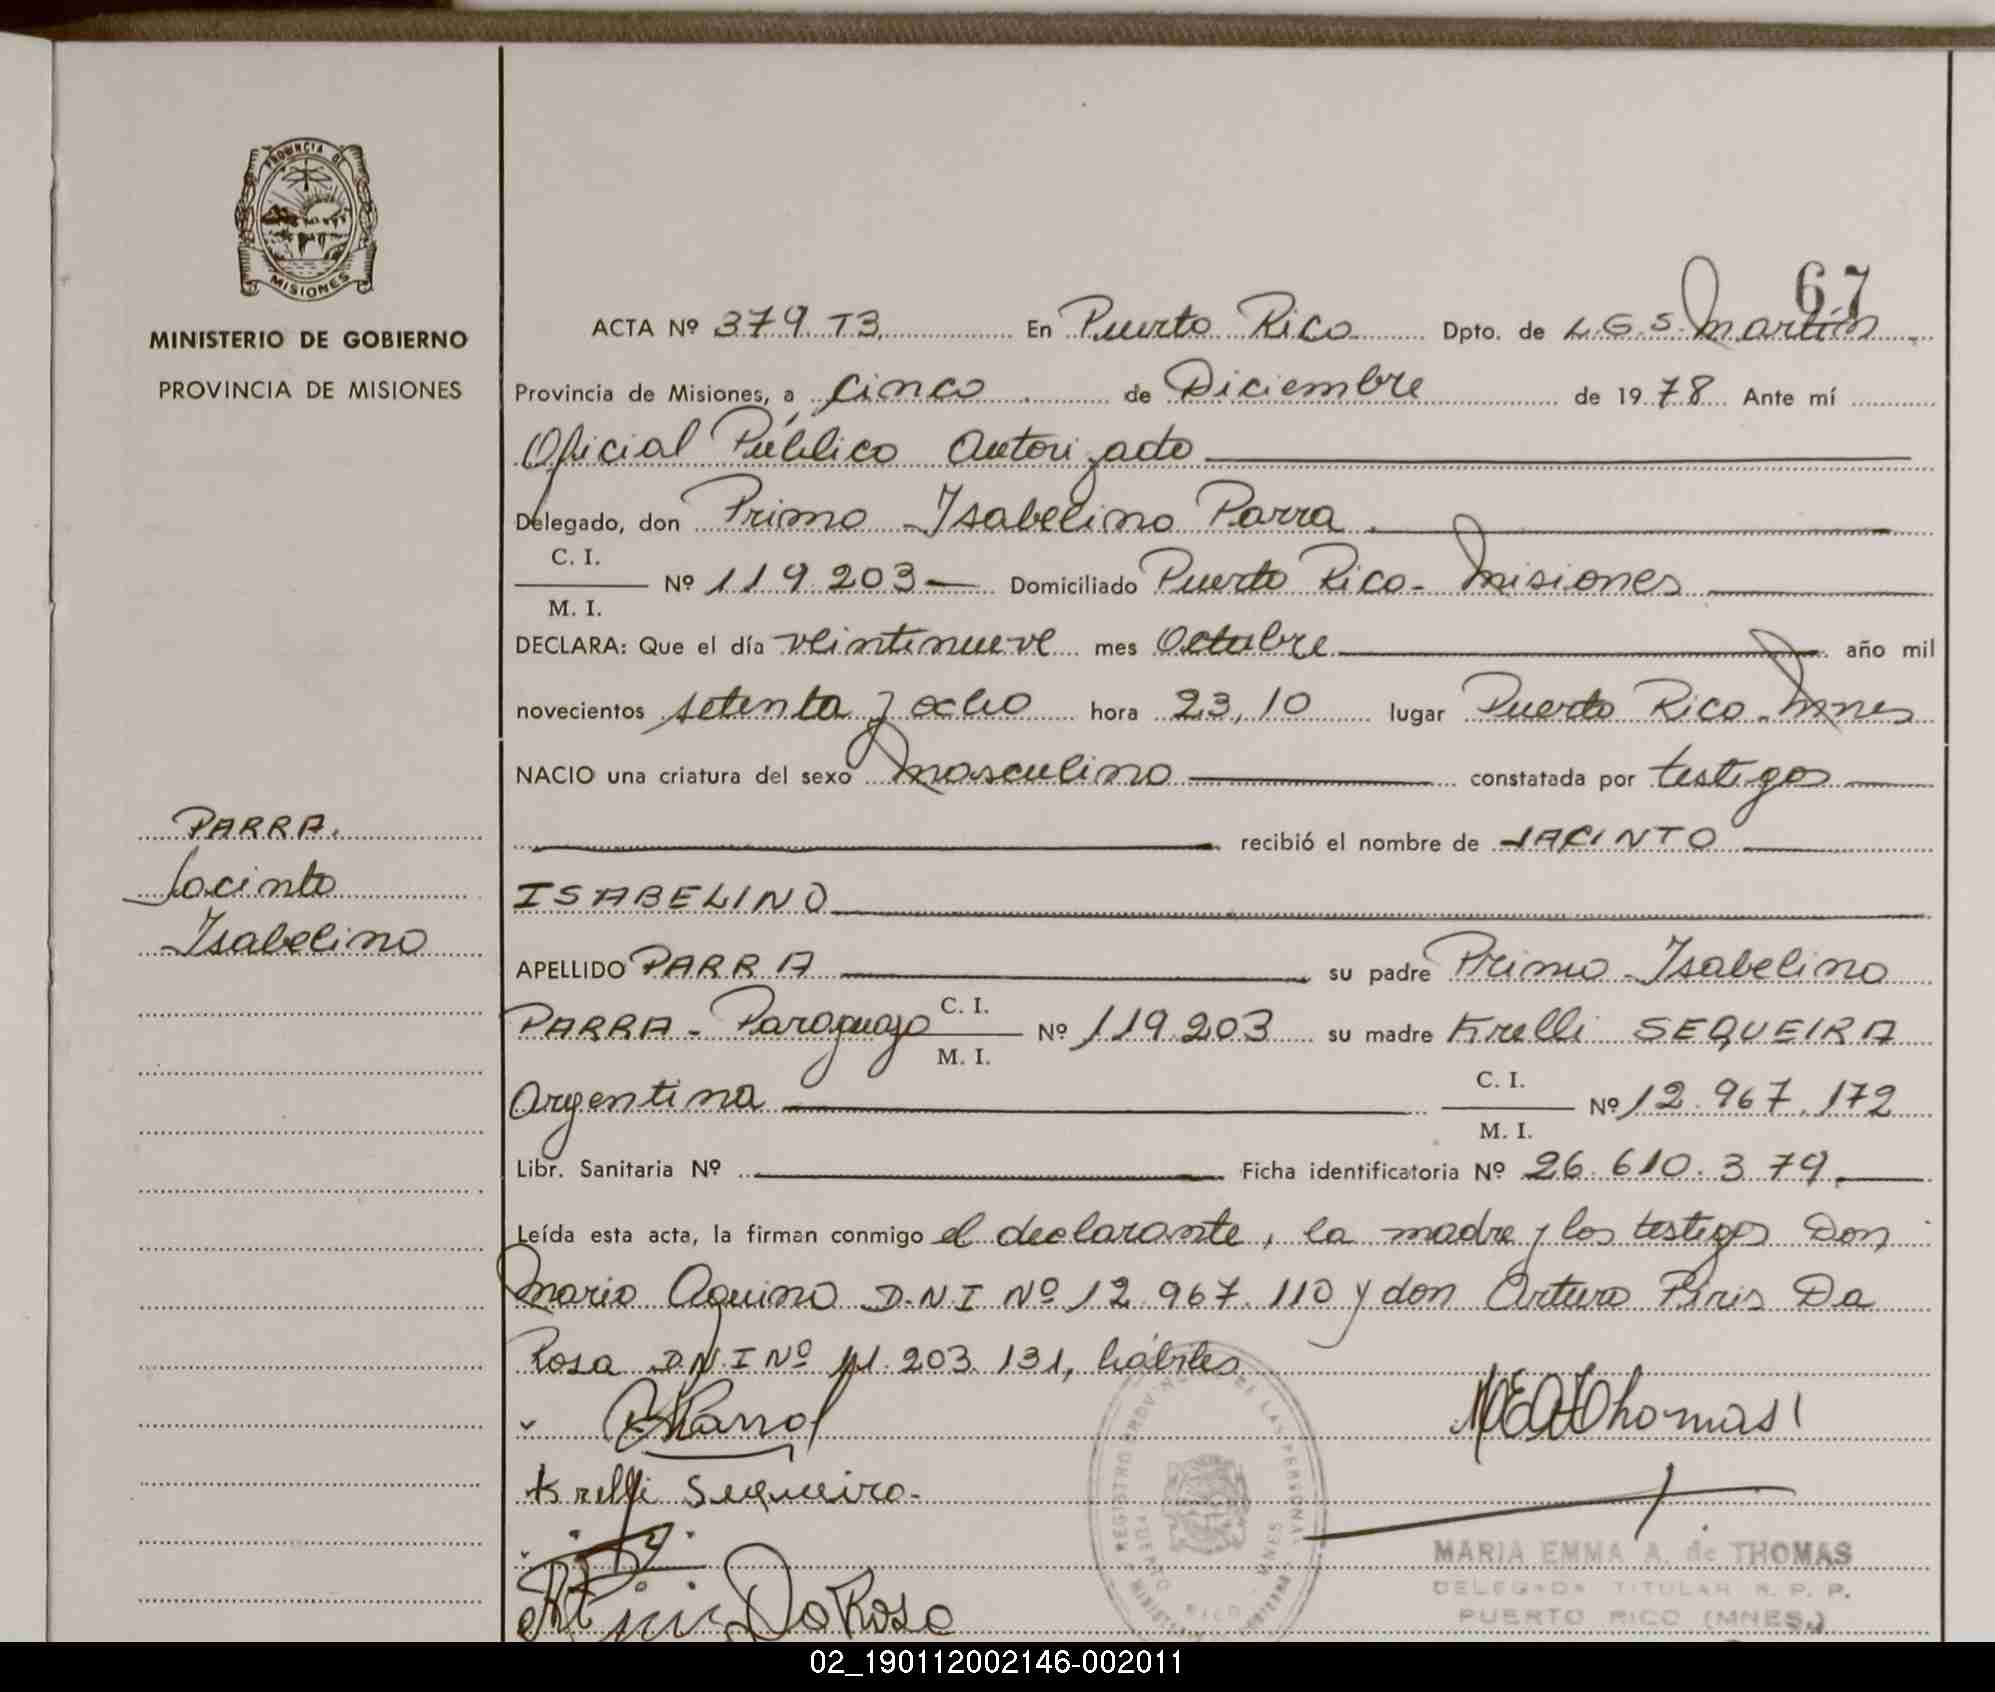 PROVINCIA DE
MISIONES
MINISTERIO DE GOBIERNO
PROVINCIA DE MISIONES
67
ACTA Nº 379 T3 En Puerto Rico Dpto. de L.G.S. Martín
Provincia de Misiones, a cinco de Diciembre de 1978 Ante mí
Oficial Público Autorizado
Delegado, don Primo Isabelino Parra
C. I.
Nº 119.203 Domiciliado Puerto Rico - Misiones
M. I.
DECLARA: Que el día veintinueve mes Octubre año mil
novecientos setenta y ocho hora 23,10 lugar Puerto Rico - Mnes
NACIO una criatura del sexo masculino constatada por testigos
PARRA.
recibió el nombre de JACINTO
Jacinto
ISABELINO
Isabelino
APELLIDO PARRA su padre Primo Isabelino
PARRA - Paraguayo C. I. M. I. Nº 119.203 su madre Krelli SEQUEIRA
Argentina C. I. M. I. Nº 12.967.172
Libr. Sanitaria Nº Ficha identificatoria Nº 26.610.379
Leída esta acta, la firman conmigo el declarante, la madre y los testigos Don
Mario Aquino D.N.I Nº 12.967.110 y don Arturo Piris Da
Rosa D.N.I Nº 11.203.131, hábiles
Krelli Sequeira.
Da Rosa
MARIA EMMA A. de THOMAS
DELEGADA TITULAR R. P. P.
PUERTO RICO (MNES.)
02_190112002146-002011